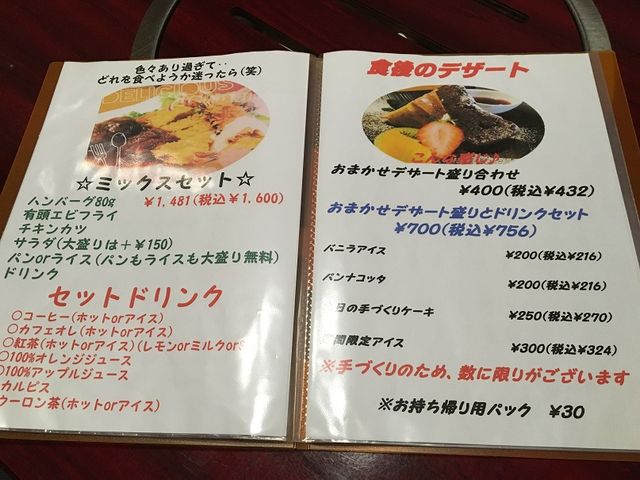 色々あり過ぎて‥
どれを食べようか迷ったら(笑)
DELICIOUS
☆ミックスセット☆
ハンバーグ80g ￥1,481(税込￥1,600)
有頭エビフライ
チキンカツ
サラダ(大盛りは＋￥150)
パンorライス(パンもライスも大盛り無料)
ドリンク
セットドリンク
○コーヒー(ホットorアイス)
○カフェオレ(ホットorアイス)
○紅茶(ホットorアイス)(レモンorミルクor
○100%オレンジジュース
○100%アップルジュース
カルピス
ウーロン茶(ホットorアイス)
食後のデザート
こんな感じ
おまかせデザート盛り合わせ
￥400(税込￥432)
おまかせデザート盛りとドリンクセット
￥700(税込￥756)
バニラアイス ￥200(税込￥216)
パンナコッタ ￥200(税込￥216)
日の手づくりケーキ ￥250(税込￥270)
間限定アイス ￥300(税込￥324)
※手づくりのため、数に限りがございます
※お持ち帰り用パック ￥30